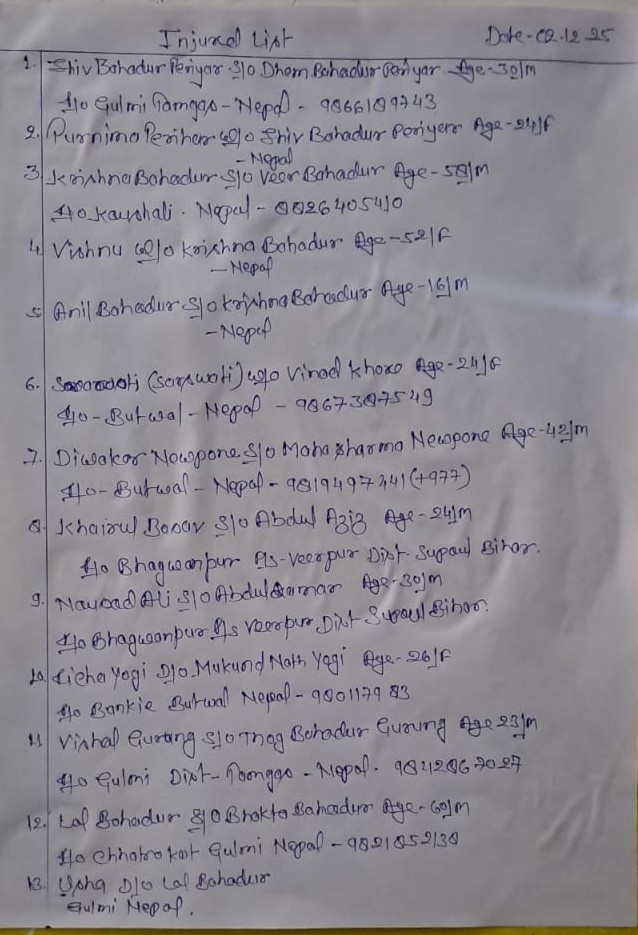 Injured List Date - 02.12.25
1. Shiv Bahadur Periyar S/o Dhom Bahadur Periyar. Age - 30/M
H/o Gulmi Tamgas - Nepal - 9866189743
2. Purnima Perihar W/o Shiv Bahadur Periyer Age - 24/F
- Nepal
3. Krishna Bahadur S/o Veer Bahadur Age - 58/M
H/o Kaushali. Nepal -
4. Vishnu W/o Krishna Bahadur Age - 52/F
- Nepal
5. Anil Bahadur S/o Krishna Bahadur Age - 16/M
- Nepal
6. (Sarswati) W/o Vinod Age - 24/F
H/o - Butwal - Nepal - 9867387549
7. Diwakar Newpane S/o Maha Sharma Newpone Age - 42/M
H/o - Butwal - Nepal - 9819497341 (+977)
8. Khairul Basar S/o Abdul Aziz Age - 24/M
H/o Bhagwanpur Ps - Veerpur Dist - Supaul Bihar.
9. Nausad Ali S/o Abdul Age - 30/M
H/o Bhagwanpur Ps Veerpur Dist Supaul Bihar.
10. Richa Yogi D/o Mukund Nath Yogi Age - 26/F
H/o Bankie Butwal Nepal - 9801179 83
11. Vishal Gurung S/o Thag Bahadur Gurung Age 23/M
H/o Gulmi Dist - Tamgas - Nepal.
12. Lal Bahadur S/o Bhakta Bahadur Age - 60/M
H/o Chhatrokot Gulmi Nepal - 9821852138
13. Usha D/o Lal Bahadur
Gulmi Nepal.